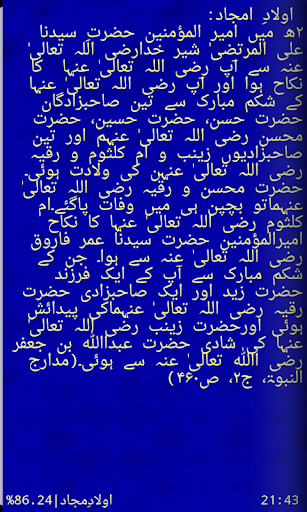 اولادِ امجاد:
۲ھ میں امیر المؤمنین حضرت سیدنا
علی المرتضیٰ شیر خدارضی اللہ تعالیٰ
عنہ سے آپ رضی اللہ تعالیٰ عنہا کا
نکاح ہوا اور آپ رضی اللہ تعالیٰ عنہا
کے شکم مبارک سے تین صاحبزادگان
حضرت حسن، حضرت حسین، حضرت
محسن رضی اللہ تعالیٰ عنہم اور تین
صاحبزادیوں زینب و ام کلثوم و رقیہ
رضی اللہ تعالیٰ عنہن کی ولادت ہوئی۔
حضرت محسن و رقیہ رضی اللہ تعالیٰ
عنہماتو بچپن ہی میں وفات پاگئے۔ام
کلثوم رضی اللہ تعالیٰ عنہا کا نکاح
امیرالمؤمنین حضرت سیدنا عمر فاروق
رضی اللہ تعالیٰ عنہ سے ہوا۔ جن کے
شکم مبارک سے آپ کے ایک فرزند
حضرت زید اور ایک صاحبزادی حضرت
رقیہ رضی اللہ تعالیٰ عنہماکی پیدائش
ہوئی اورحضرت زینب رضی اللہ تعالیٰ
عنہا کی شادی حضرت عبداللہ بن جعفر
رضی اللہ تعالیٰ عنہ سے ہوئی۔(مدارج
النبوۃ، ج۲، ص۴۶۰)
اولادِمجاد|86.24%
21:43